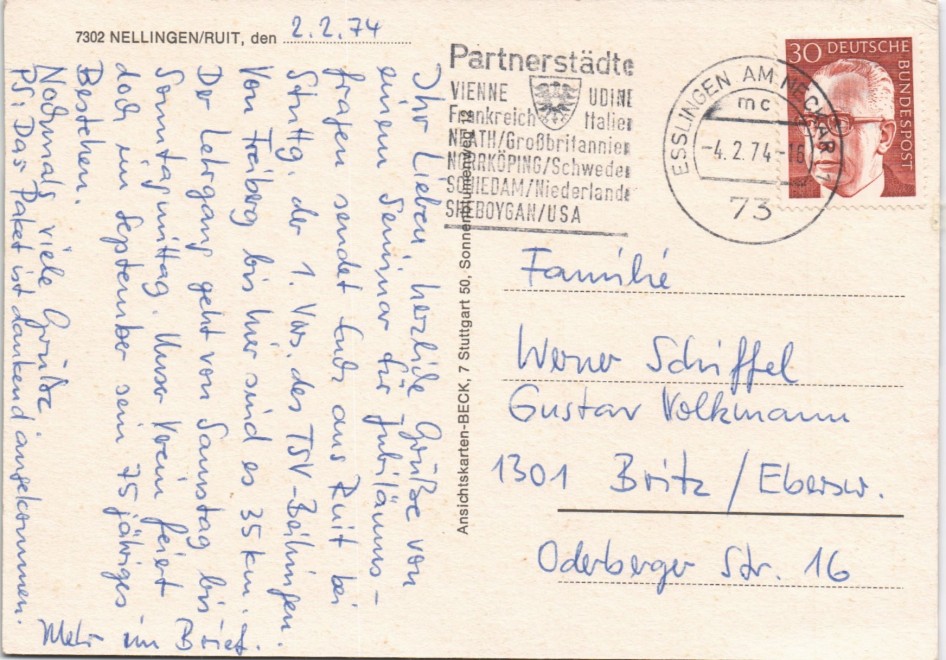 7302 NELLINGEN/RUIT, den 2.2.74
Ihr Lieben, herzliche Grüße von
einem Seminar für Jubiläums-
fragen sendet Euch aus Ruit bei
Stuttg. der 1. Vors. des TSV-Beihingen.
Von Freiberg bis hier sind es 35 km.
Der Lehrgang geht von Samstag bis
Sonntagmittag. Unser Verein feiert
doch im September sein 75jähriges
Bestehen.
Nochmals viele Grüße
PS: Das Paket ist dankend angekommen.
Mehr im Brief.
Ansichtskarten-BECK, 7 Stuttgart 50, Sonnenblumenweg 12
Partnerstädte
VIENNE UDINE
Frankreich Italien
NEATH/Großbritannien
NORRKÖPING/Schweden
SCHIEDAM/Niederlande
SHEBOYGAN/USA
ESSLINGEN AM NECKAR 1
mc
-4.2.74-16
73
30 DEUTSCHE
BUNDESPOST
Familie
Werner Schiffel
Gustav Volkmann
1301 Britz/Ebersw.
Oderberger Str. 16